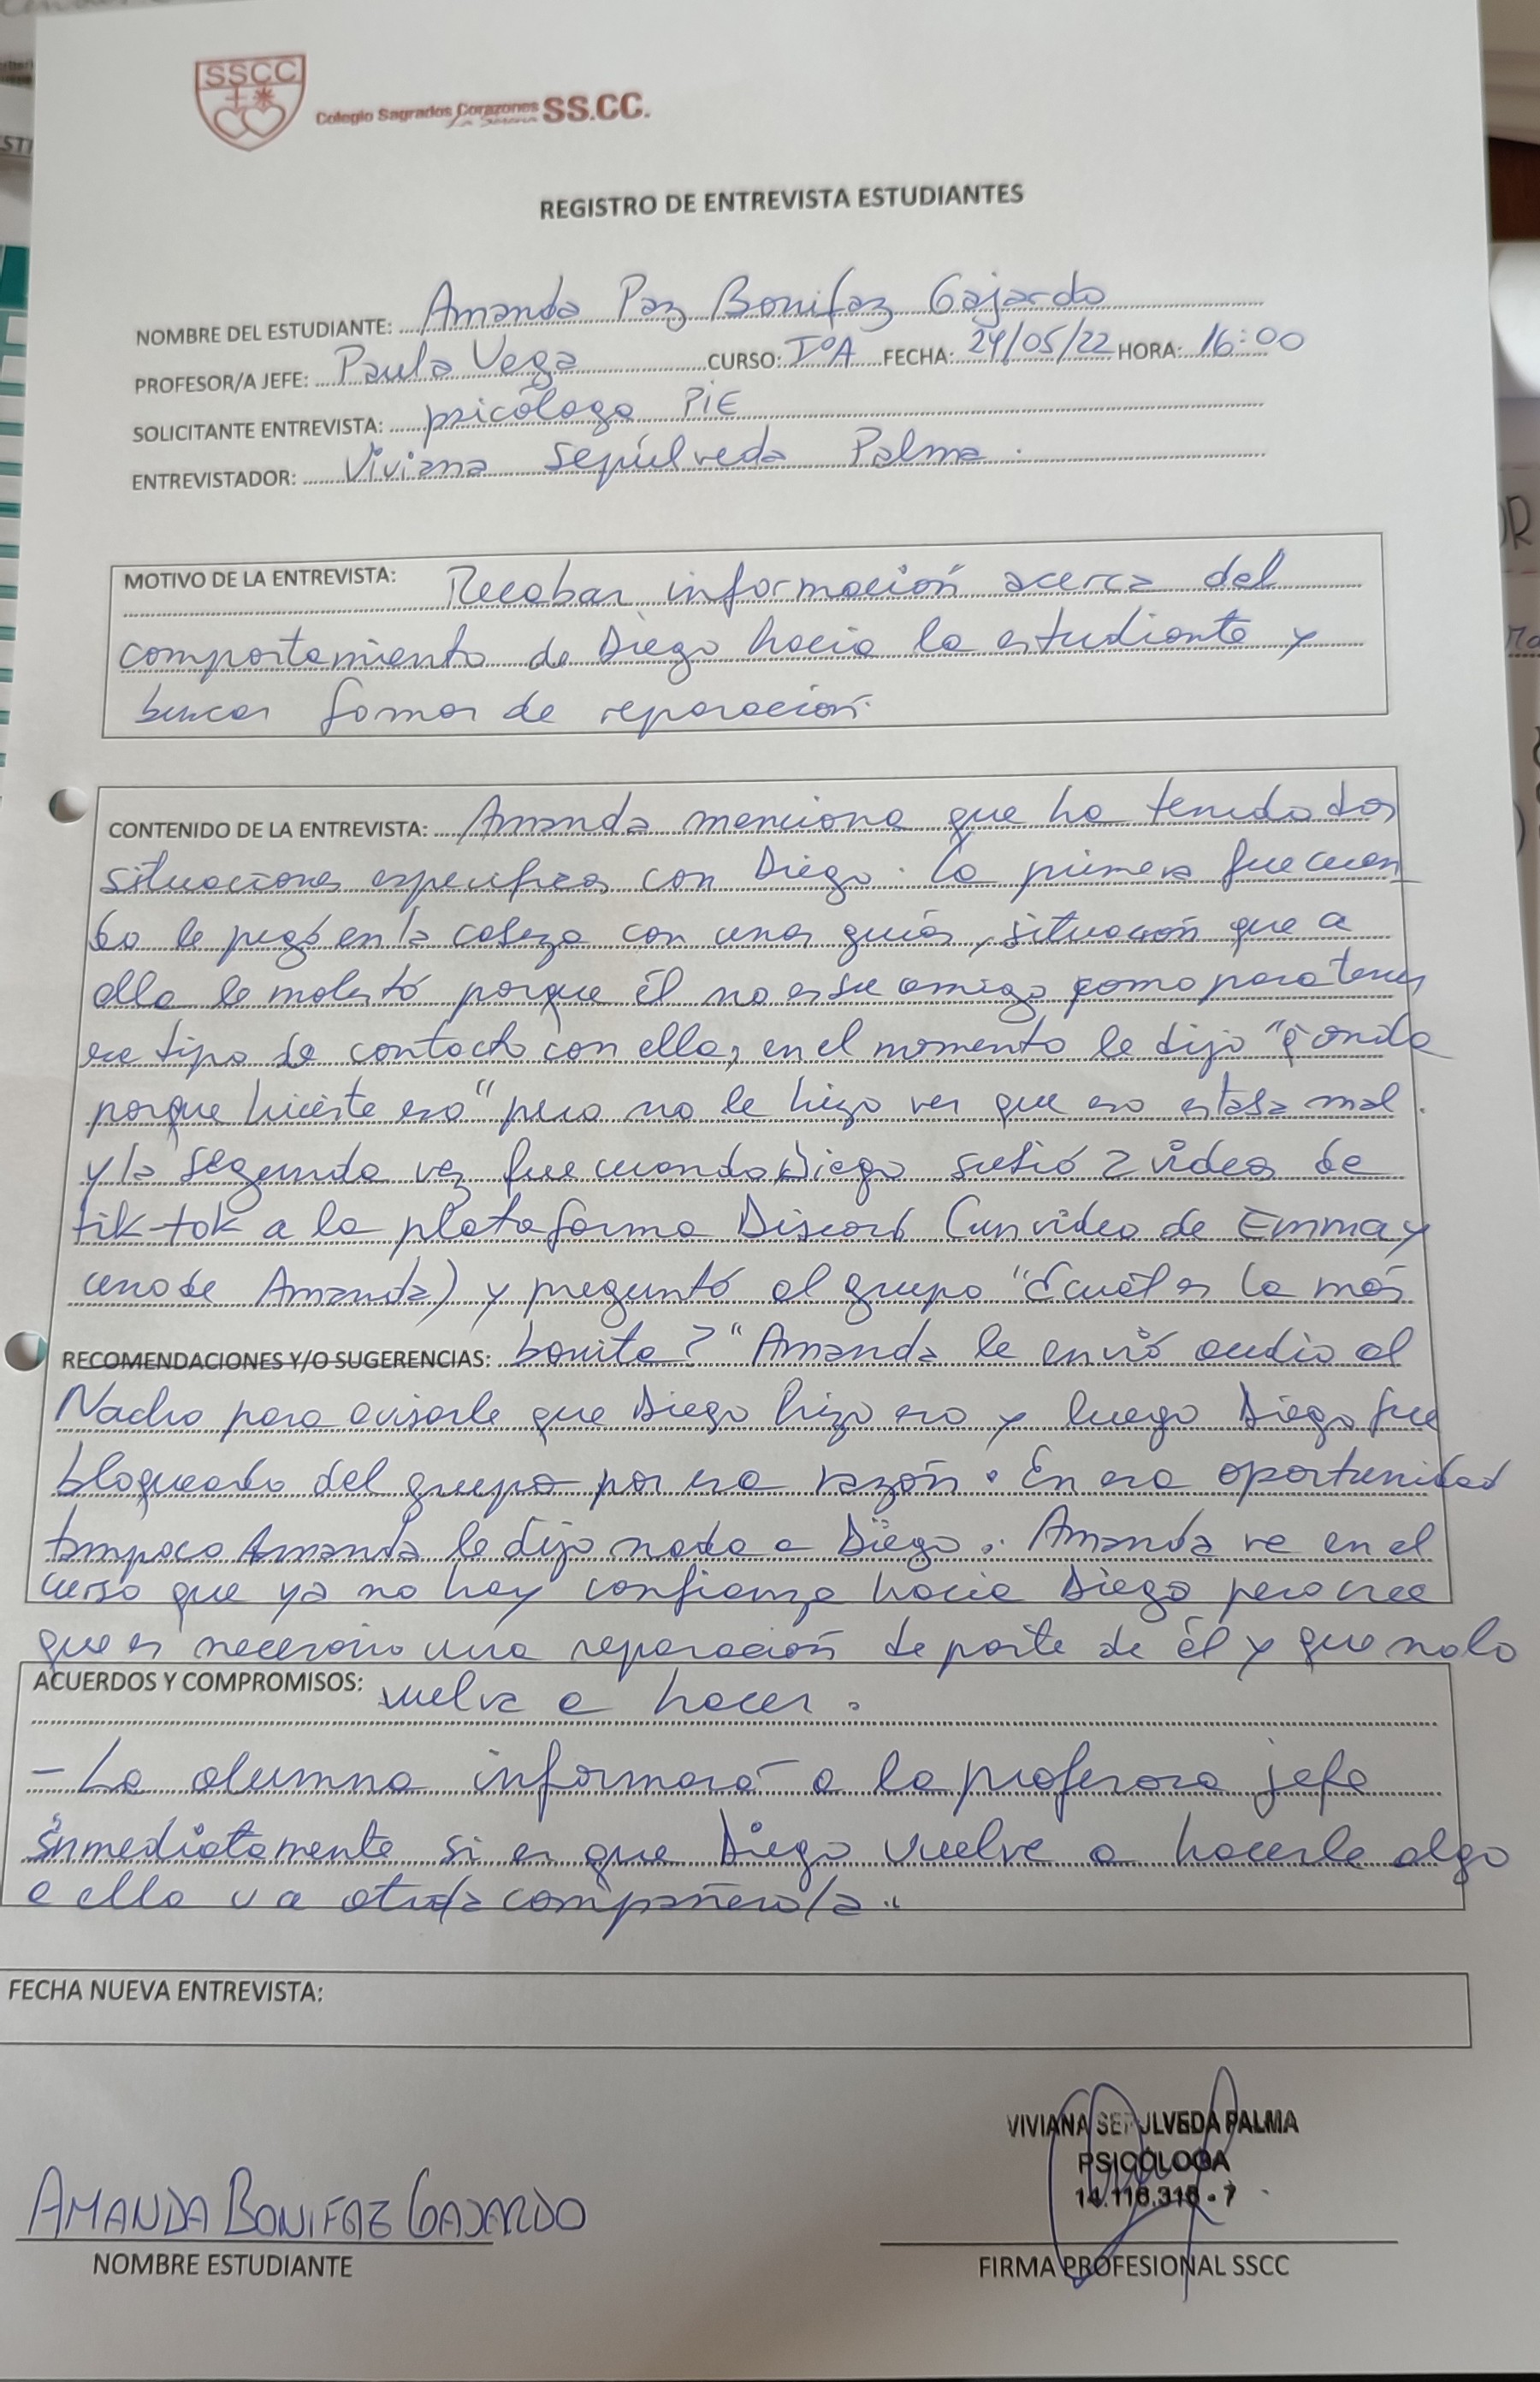 SSCC
Colegio Sagrados Corazones SS.CC.
La Serena
REGISTRO DE ENTREVISTA ESTUDIANTES
NOMBRE DEL ESTUDIANTE: Amanda Paz Bonifaz Gajardo
PROFESOR/A JEFE: Paula Vega CURSO: I°A FECHA: 24/05/22 HORA: 16:00
SOLICITANTE ENTREVISTA: psicóloga PIE
ENTREVISTADOR: Viviana Sepúlveda Palma.
MOTIVO DE LA ENTREVISTA: Recabar información acerca del
comportamiento de Diego hacia la estudiante y
buscar formas de reparación.
CONTENIDO DE LA ENTREVISTA: Amanda menciona que ha tenido dos
situaciones específicas con Diego. La primera fue cuan
do le pegó en la cabeza con unas guías, situación que a
ella le molestó porque él no es su amigo como para tener
ese tipo de contacto con ella, en el momento le dijo "onda
porque hiciste eso" pero no le hizo ver que eso estaba mal.
y la segunda vez fue cuando Diego subió 2 videos de
tik-tok a la plataforma Discord (un video de Emma y
uno de Amanda) y preguntó al grupo "¿cuál es la más
RECOMENDACIONES Y/O SUGERENCIAS: bonita?" Amanda le envió audio al
Nacho para avisarle que Diego hizo eso y luego Diego fue
bloqueado del grupo por esa razón. En esa oportunidad
tampoco Amanda le dijo nada a Diego. Amanda ve en el
curso que ya no hay confianza hacia Diego pero cree
que es necesario una reparación de parte de él y que no lo
ACUERDOS Y COMPROMISOS: vuelva a hacer.
- La alumna informará a la profesora jefe
inmediatamente si es que Diego vuelve a hacerle algo
a ella u a otro/a compañero/a.
FECHA NUEVA ENTREVISTA:
VIVIANA SEPULVEDA PALMA
PSICÓLOGA
14.116.316-7
AMANDA BONIFAZ GAJARDO
NOMBRE ESTUDIANTE
FIRMA PROFESIONAL SSCC